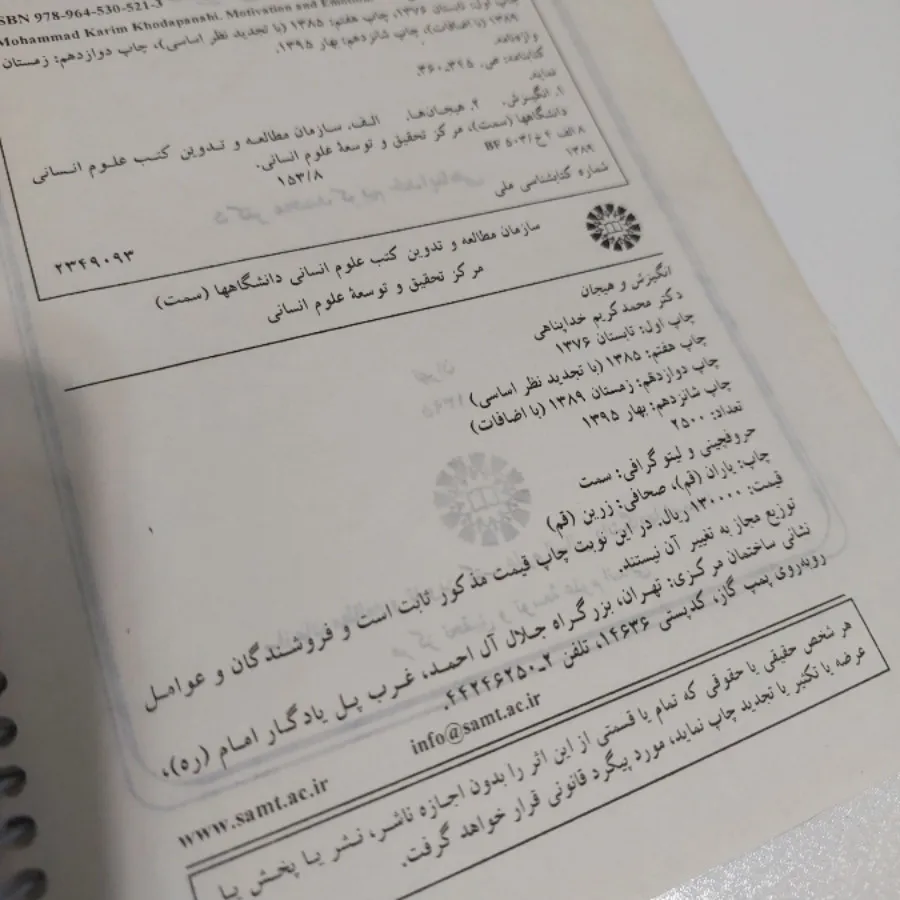 ISBN 978-964-530-521-3
Mohammad Karim Khodapanahi. Motivation and Emotion
چاپ اول: تابستان ۱۳۷۶، چاپ هفتم: ۱۳۸۵ (با تجدید نظر اساسی)، چاپ دوازدهم: زمستان
۱۳۸۹ (با اضافات)، چاپ شانزدهم: بهار ۱۳۹۵.
واژه‌نامه.
کتابنامه: ص. ۳۴۵ـ۳۶۰.
نمایه.
۱. انگیزش. ۲. هیجان‌ها. الف. سازمان مطالعه و تدوین کتب علوم انسانی
دانشگاهها (سمت)، مرکز تحقیق و توسعۀ علوم انسانی.
۸ الف ۴خ/ BF ۵۰۳ ۱۵۳/۸
۱۳۸۹
شماره کتابشناسی ملی ۲۳۴۹۰۹۳
سازمان مطالعه و تدوین کتب علوم انسانی دانشگاهها (سمت)
مرکز تحقیق و توسعۀ علوم انسانی
انگیزش و هیجان
دکتر محمدکریم خداپناهی
چاپ اول: تابستان ۱۳۷۶
چاپ هفتم: ۱۳۸۵ (با تجدید نظر اساسی)
چاپ دوازدهم: زمستان ۱۳۸۹ (با اضافات)
چاپ شانزدهم: بهار ۱۳۹۵
تعداد: ۲۵۰۰
حروفچینی و لیتوگرافی: سمت
چاپ: یاران (قم)، صحافی: زرین (قم)
قیمت: ۱۳۰۰۰۰ ریال. در این نوبت چاپ قیمت مذکور ثابت است و فروشندگان و عوامل
توزیع مجاز به تغییر آن نیستند.
نشانی ساختمان مرکزی: تهران، بزرگراه جلال آل احمد، غرب پل یادگار امام (ره)،
روبه‌روی پمپ گاز، کدپستی ۱۴۶۳۶، تلفن ۲ـ۴۴۲۴۶۲۵۰.
www.samt.ac.ir info@samt.ac.ir
هر شخص حقیقی یا حقوقی که تمام یا قسمتی از این اثر را بدون اجازه ناشر، نشر یا پخش یا
عرضه یا تکثیر یا تجدید چاپ نماید، مورد پیگرد قانونی قرار خواهد گرفت.